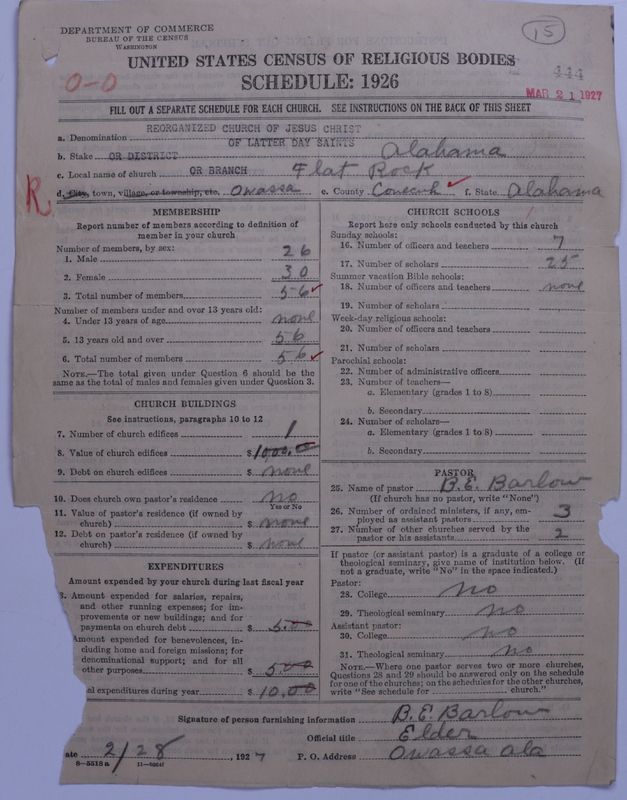 DEPARTMENT OF COMMERCE
BUREAU OF THE CENSUS
WASHINGTON
15
UNITED STATES CENSUS OF RELIGIOUS BODIES
444
0-0
SCHEDULE: 1926
MAR 21 1927
FILL OUT A SEPARATE SCHEDULE FOR EACH CHURCH. SEE INSTRUCTIONS ON THE BACK OF THIS SHEET
REORGANIZED CHURCH OF JESUS CHRIST
a. Denomination
OF LATTER DAY SAINTS
b. Stake OR DISTRICT Alabama
c. Local name of church OR BRANCH Flat Rock
R
d. City, town, village, or township, etc. Owassa e. County Conecuh f. State Alabama
MEMBERSHIP
Report number of members according to definition of
member in your church
Number of members, by sex:
1. Male 26
2. Female 30
3. Total number of members 56
Number of members under and over 13 years old:
4. Under 13 years of age none
5. 13 years old and over 56
6. Total number of members 56
NOTE.—The total given under Question 6 should be the
same as the total of males and females given under Question 3.
CHURCH BUILDINGS
See instructions, paragraphs 10 to 12
7. Number of church edifices 1
8. Value of church edifices $ 1000.00
9. Debt on church edifices $ none
10. Does church own pastor's residence no
Yes or No
11. Value of pastor's residence (if owned by
church) $ none
12. Debt on pastor's residence (if owned by
church) $ none
EXPENDITURES
Amount expended by your church during last fiscal year
3. Amount expended for salaries, repairs,
and other running expenses; for im-
provements or new buildings; and for
payments on church debt $ 5.00
Amount expended for benevolences, in-
cluding home and foreign missions; for
denominational support; and for all
other purposes $ 5.00
al expenditures during year $ 10.00
CHURCH SCHOOLS
Report here only schools conducted by this church
Sunday schools:
16. Number of officers and teachers 7
17. Number of scholars 25
Summer vacation Bible schools:
18. Number of officers and teachers none
19. Number of scholars
Week-day religious schools:
20. Number of officers and teachers
21. Number of scholars
Parochial schools:
22. Number of administrative officers
23. Number of teachers—
a. Elementary (grades 1 to 8)
b. Secondary
24. Number of scholars—
a. Elementary (grades 1 to 8)
b. Secondary
PASTOR
25. Name of pastor B.E. Barlow
(If church has no pastor, write "None")
26. Number of ordained ministers, if any, em-
ployed as assistant pastors 3
27. Number of other churches served by the
pastor or his assistants 2
If pastor (or assistant pastor) is a graduate of a college or
theological seminary, give name of institution below. (If
not a graduate, write "No" in the space indicated.)
Pastor:
28. College no
29. Theological seminary no
Assistant pastor:
30. College no
31. Theological seminary no
NOTE.—Where one pastor serves two or more churches,
Questions 28 and 29 should be answered only on the schedule
for one of the churches; on the schedules for the other churches,
write "See schedule for church."
Signature of person furnishing information B.E. Barlow
Official title Elder
ate 2/28, 1927 P. O. Address Owassa ala
8-5518 a